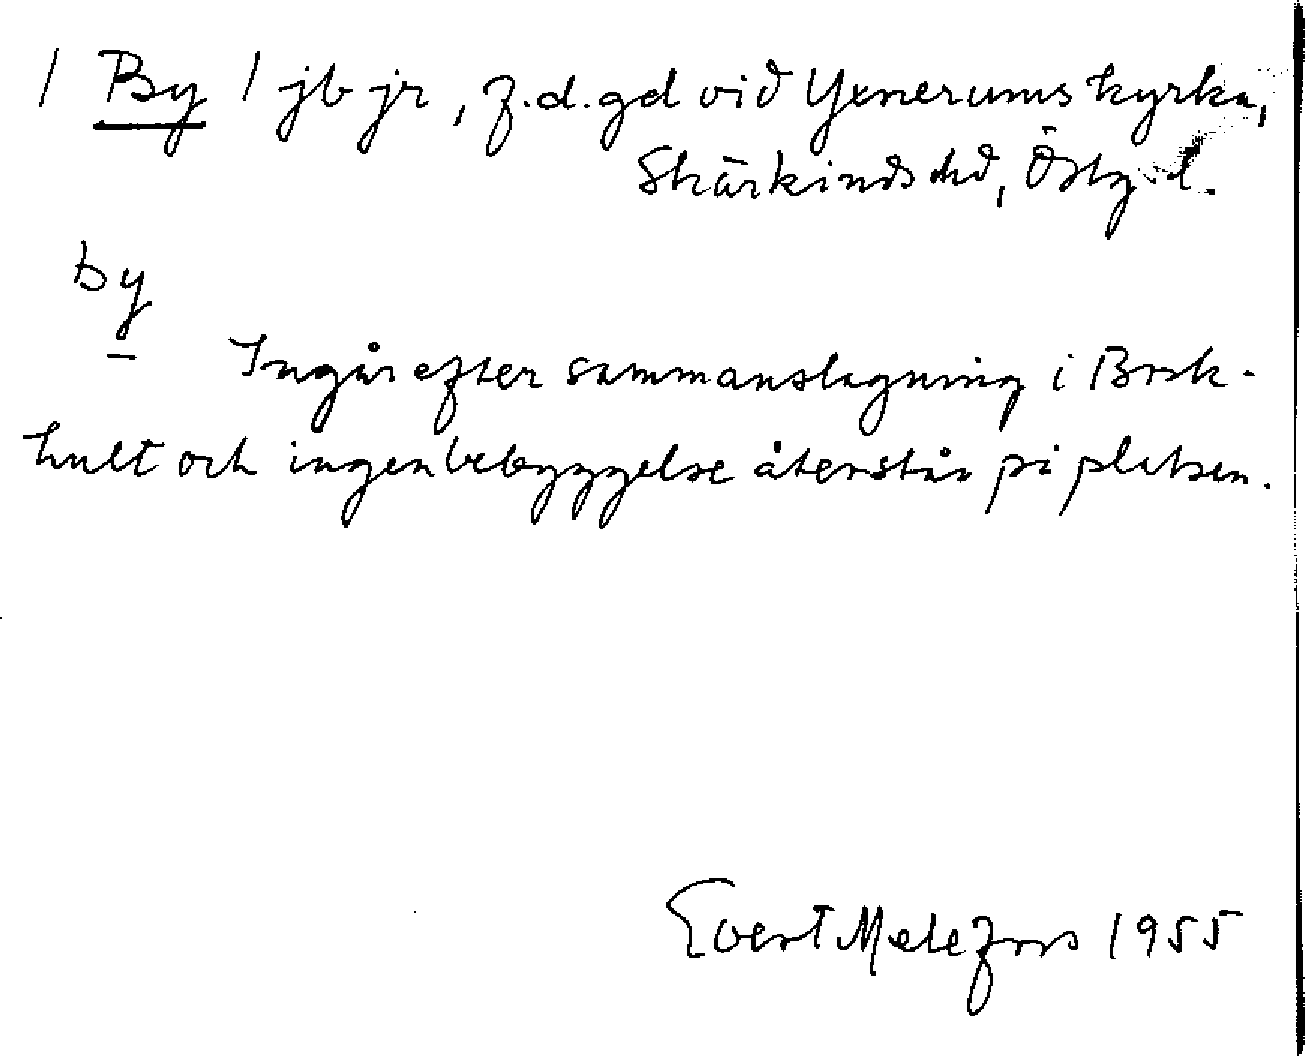 / By / jb jr, f.d. gd vid Yxnerums kyrka,
Skärkinds hd, Östg. l.
by
Ingår efter sammanslagning i Brok-
hult och ingen bebyggelse återstår på platsen.
Evert Melefors 1955